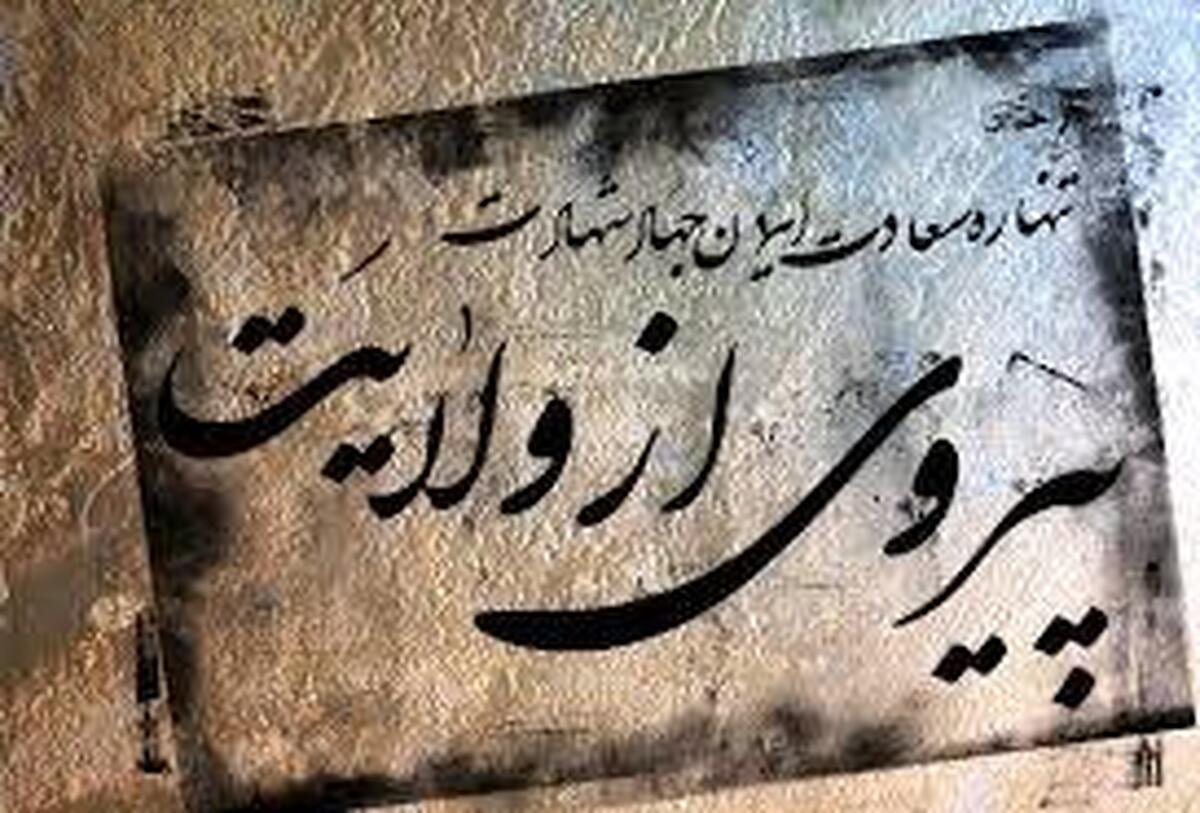 تنها ره سعادت ایمان جهاد شهادت
پیروی از ولایت